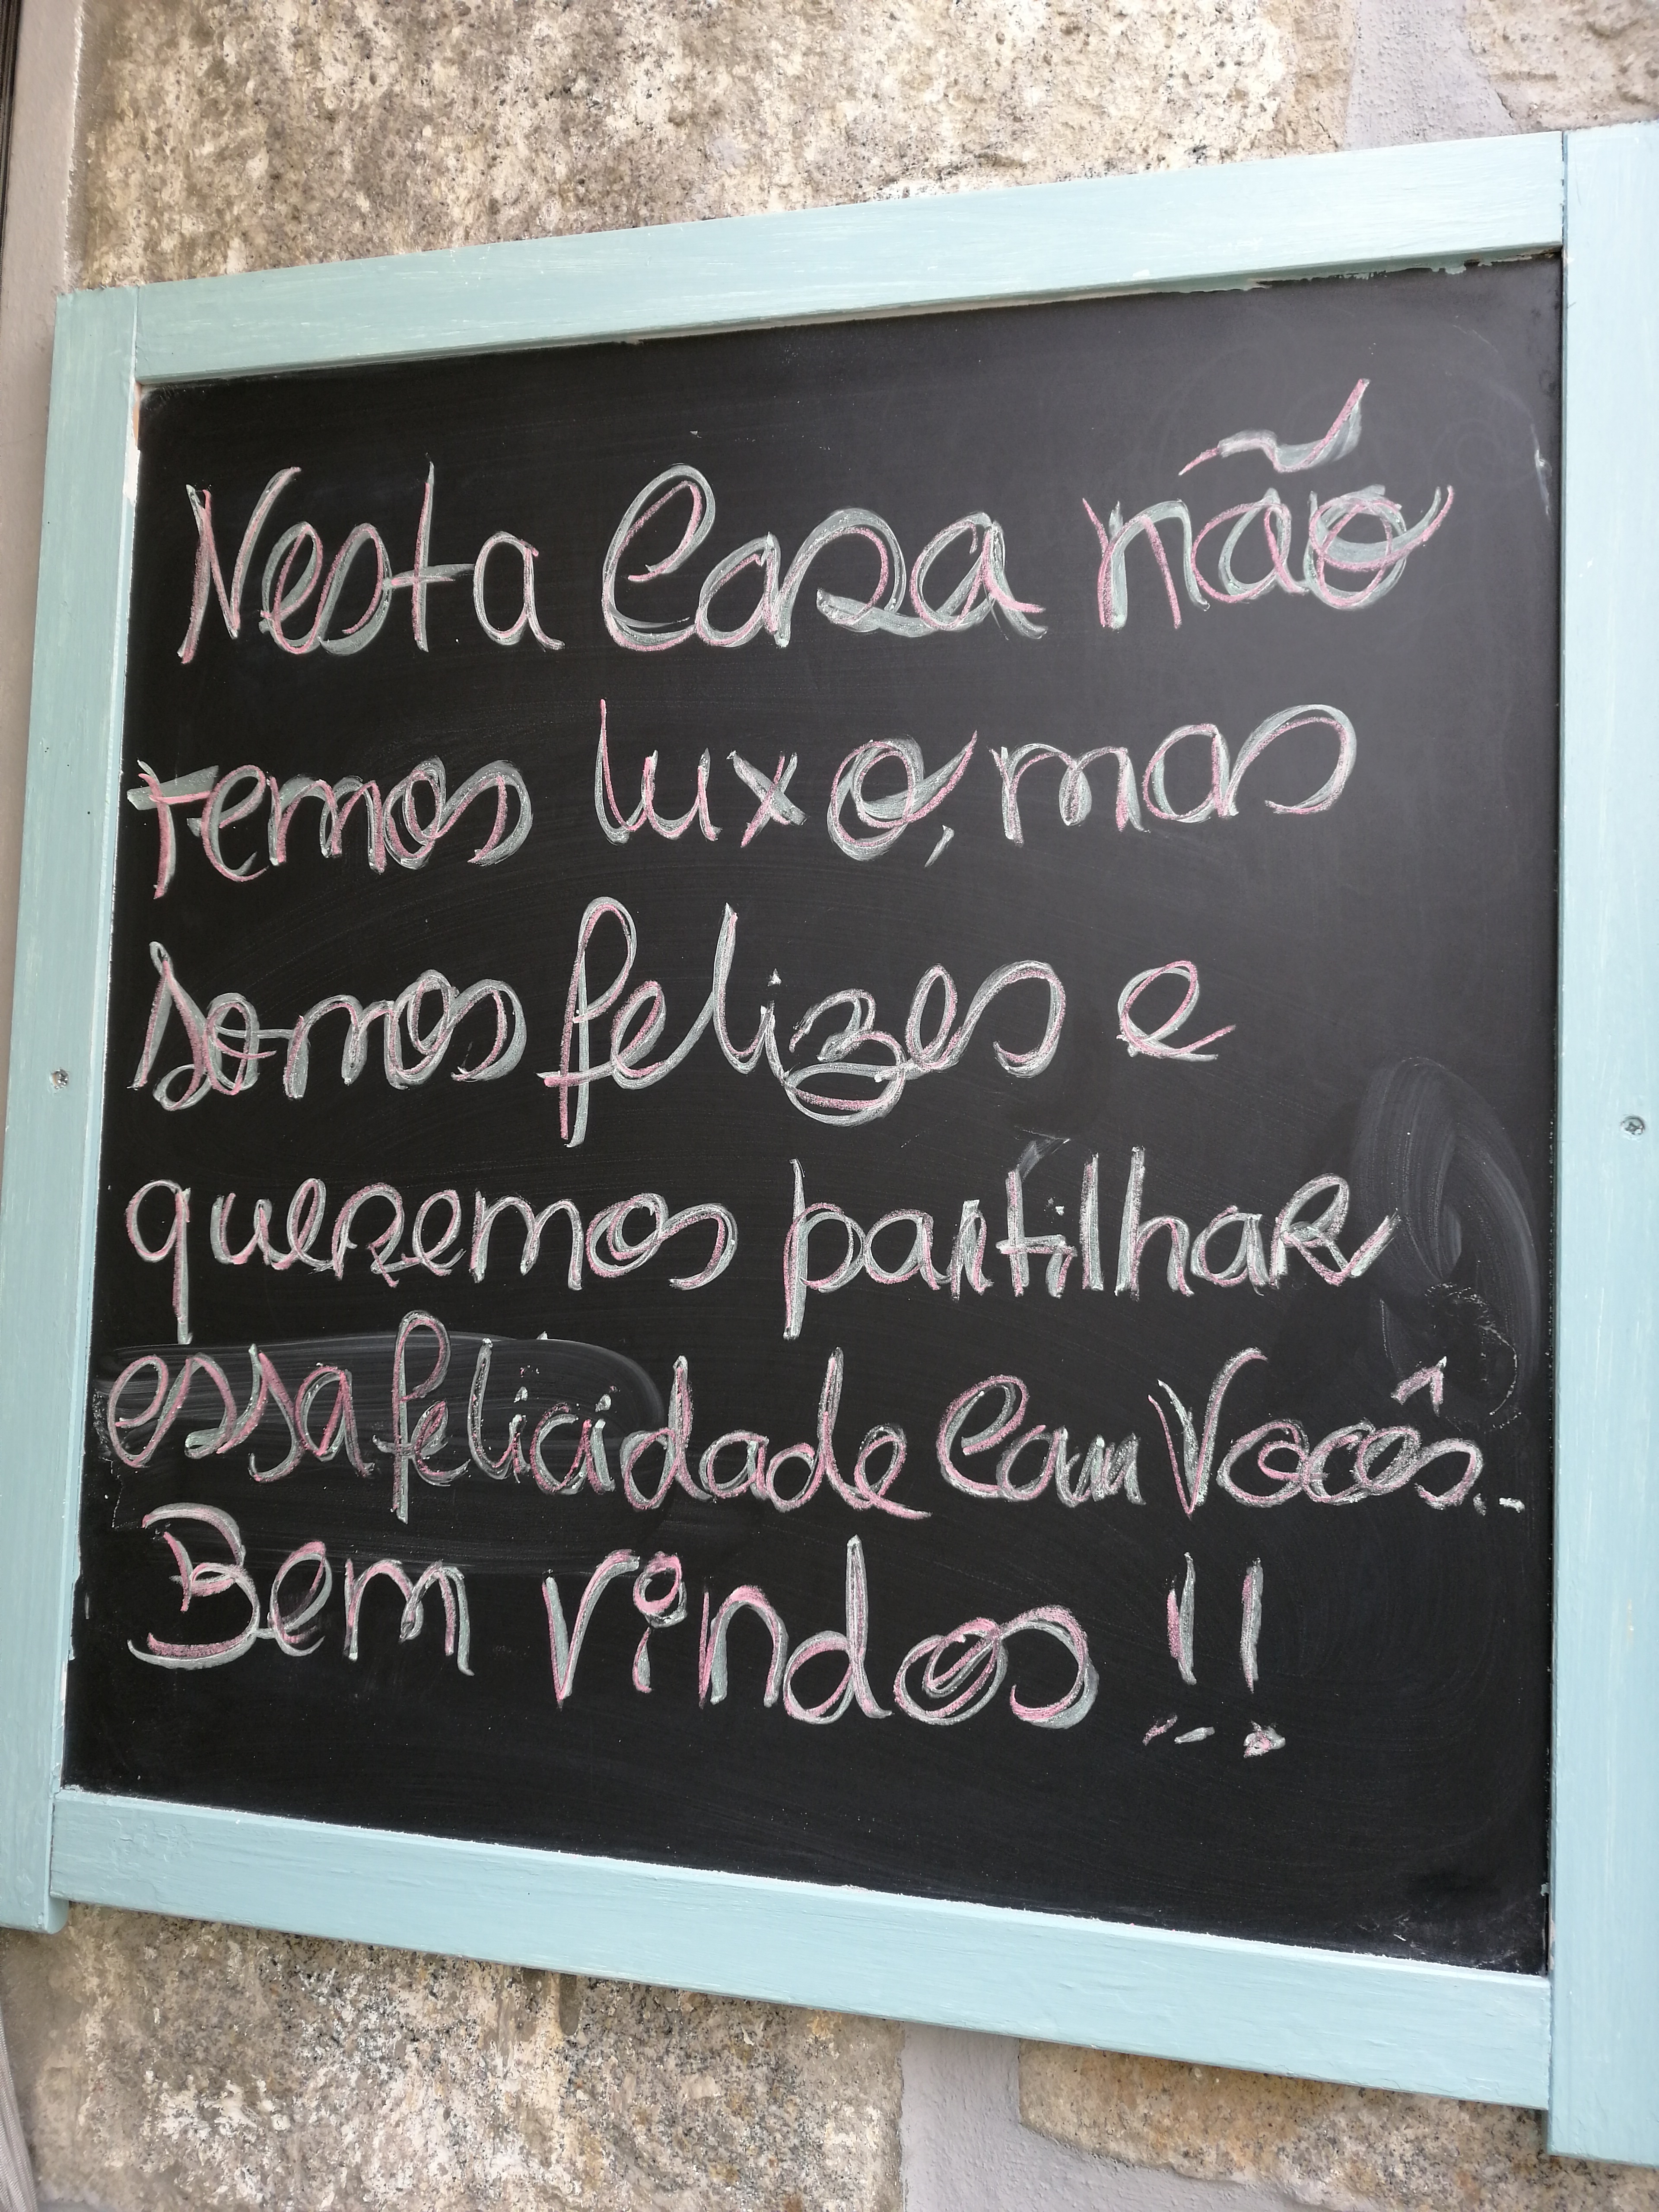 Nesta Casa não
temos luxo, mas
somos felizes e
queremos partilhar
essa felicidade Com Vocês..
Bem vindos!!